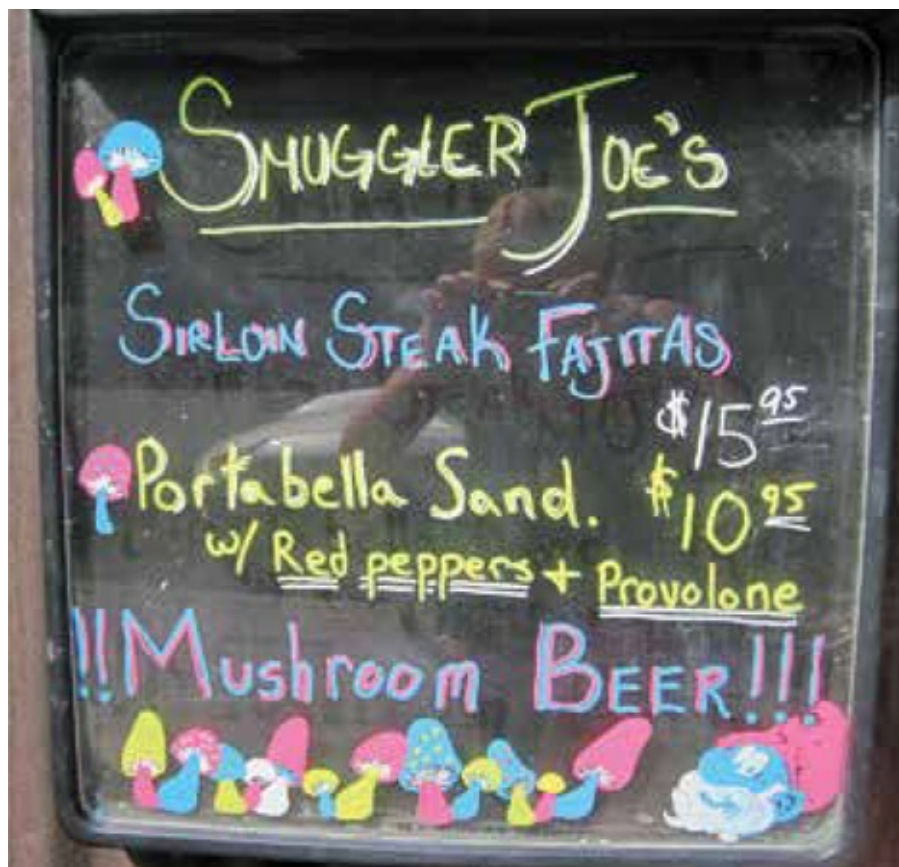 SMUGGLER JOE'S
SIRLOIN STEAK FAJITAS
$15.95
Portabella Sand. $10.95
w/ Red peppers + Provolone
!!Mushroom BEER!!!